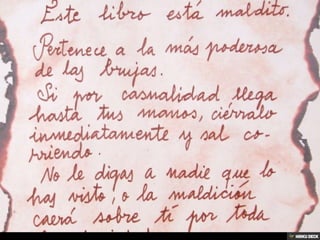 Este libro está maldito.
Pertenece a la más poderosa
de las brujas.
Si por casualidad llega
hasta tus manos, ciérralo
inmediatamente y sal co-
rriendo.
No le digas a nadie que lo
has visto, o la maldición
caerá sobre tí por toda